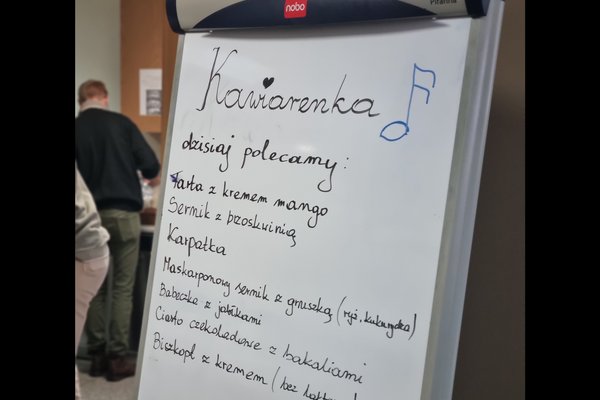 nobo
Piranha
Kawiarenka
dzisiaj polecamy:
Tarta z kremem mango
Sernik z brzoskwinią
Karpatka
Maskarponowy sernik z gruszką (ryż, kukurydza)
Babeczka z jabłkami
Ciasto czekoladowe z bakaliami
Biszkopt z kremem (bez